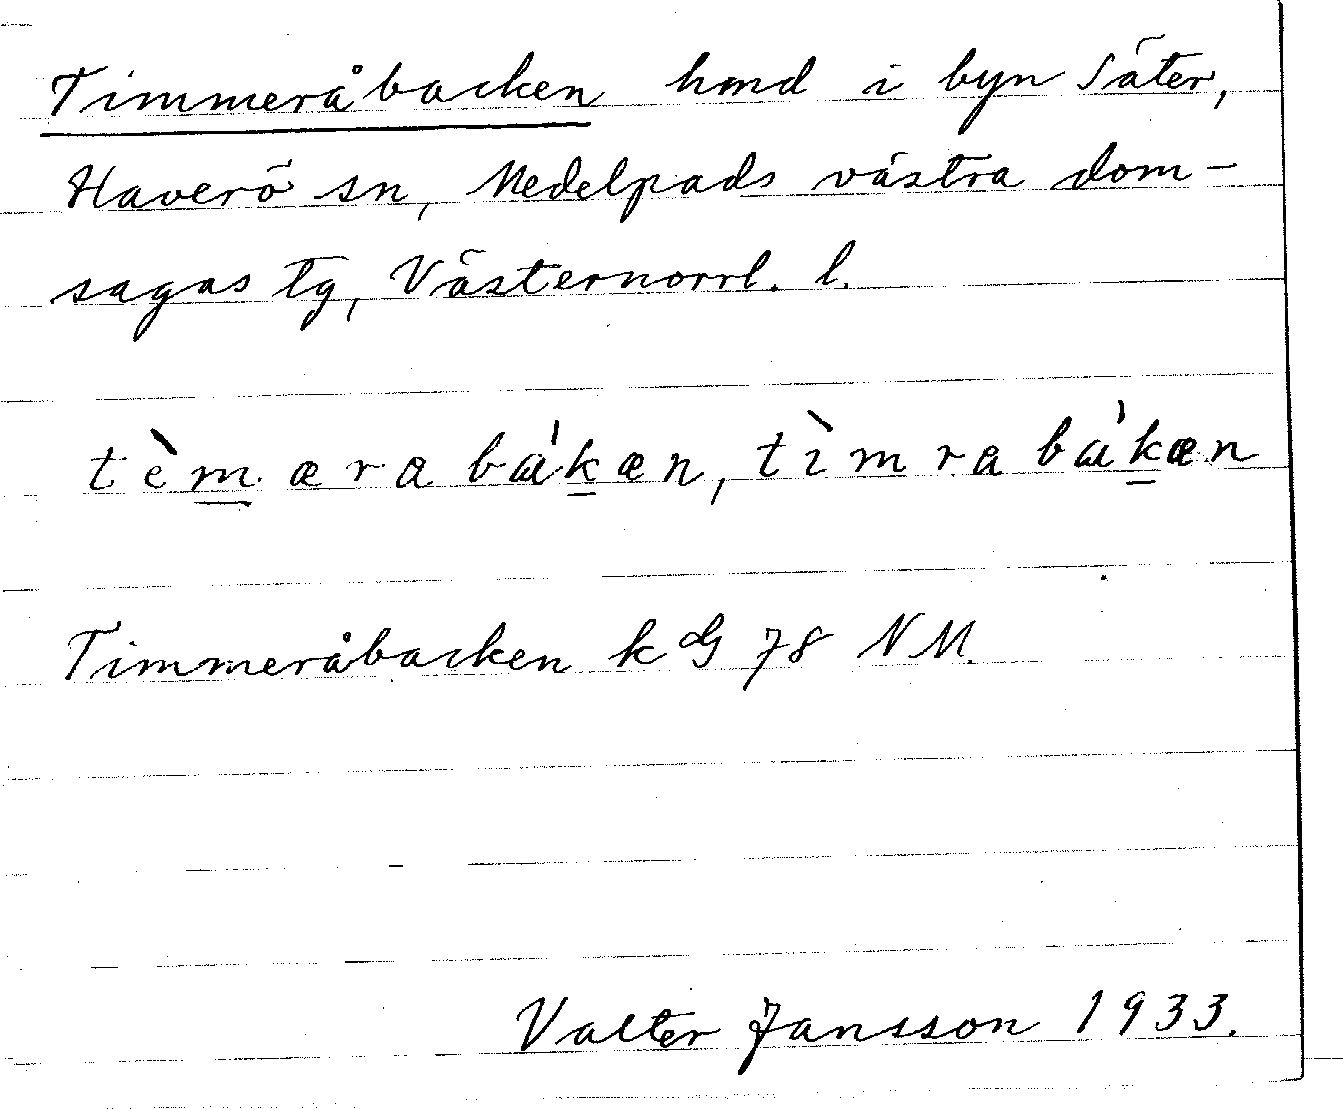 Timmeråbacken hmd i byn Säter,
Haverö sn, Medelpads västra dom-
sagas tg, Västernorrl. l.
tèmæra bákæn, tìmra bákæn
Timmeråbacken k G 78 NM.
Valter Jansson 1933.